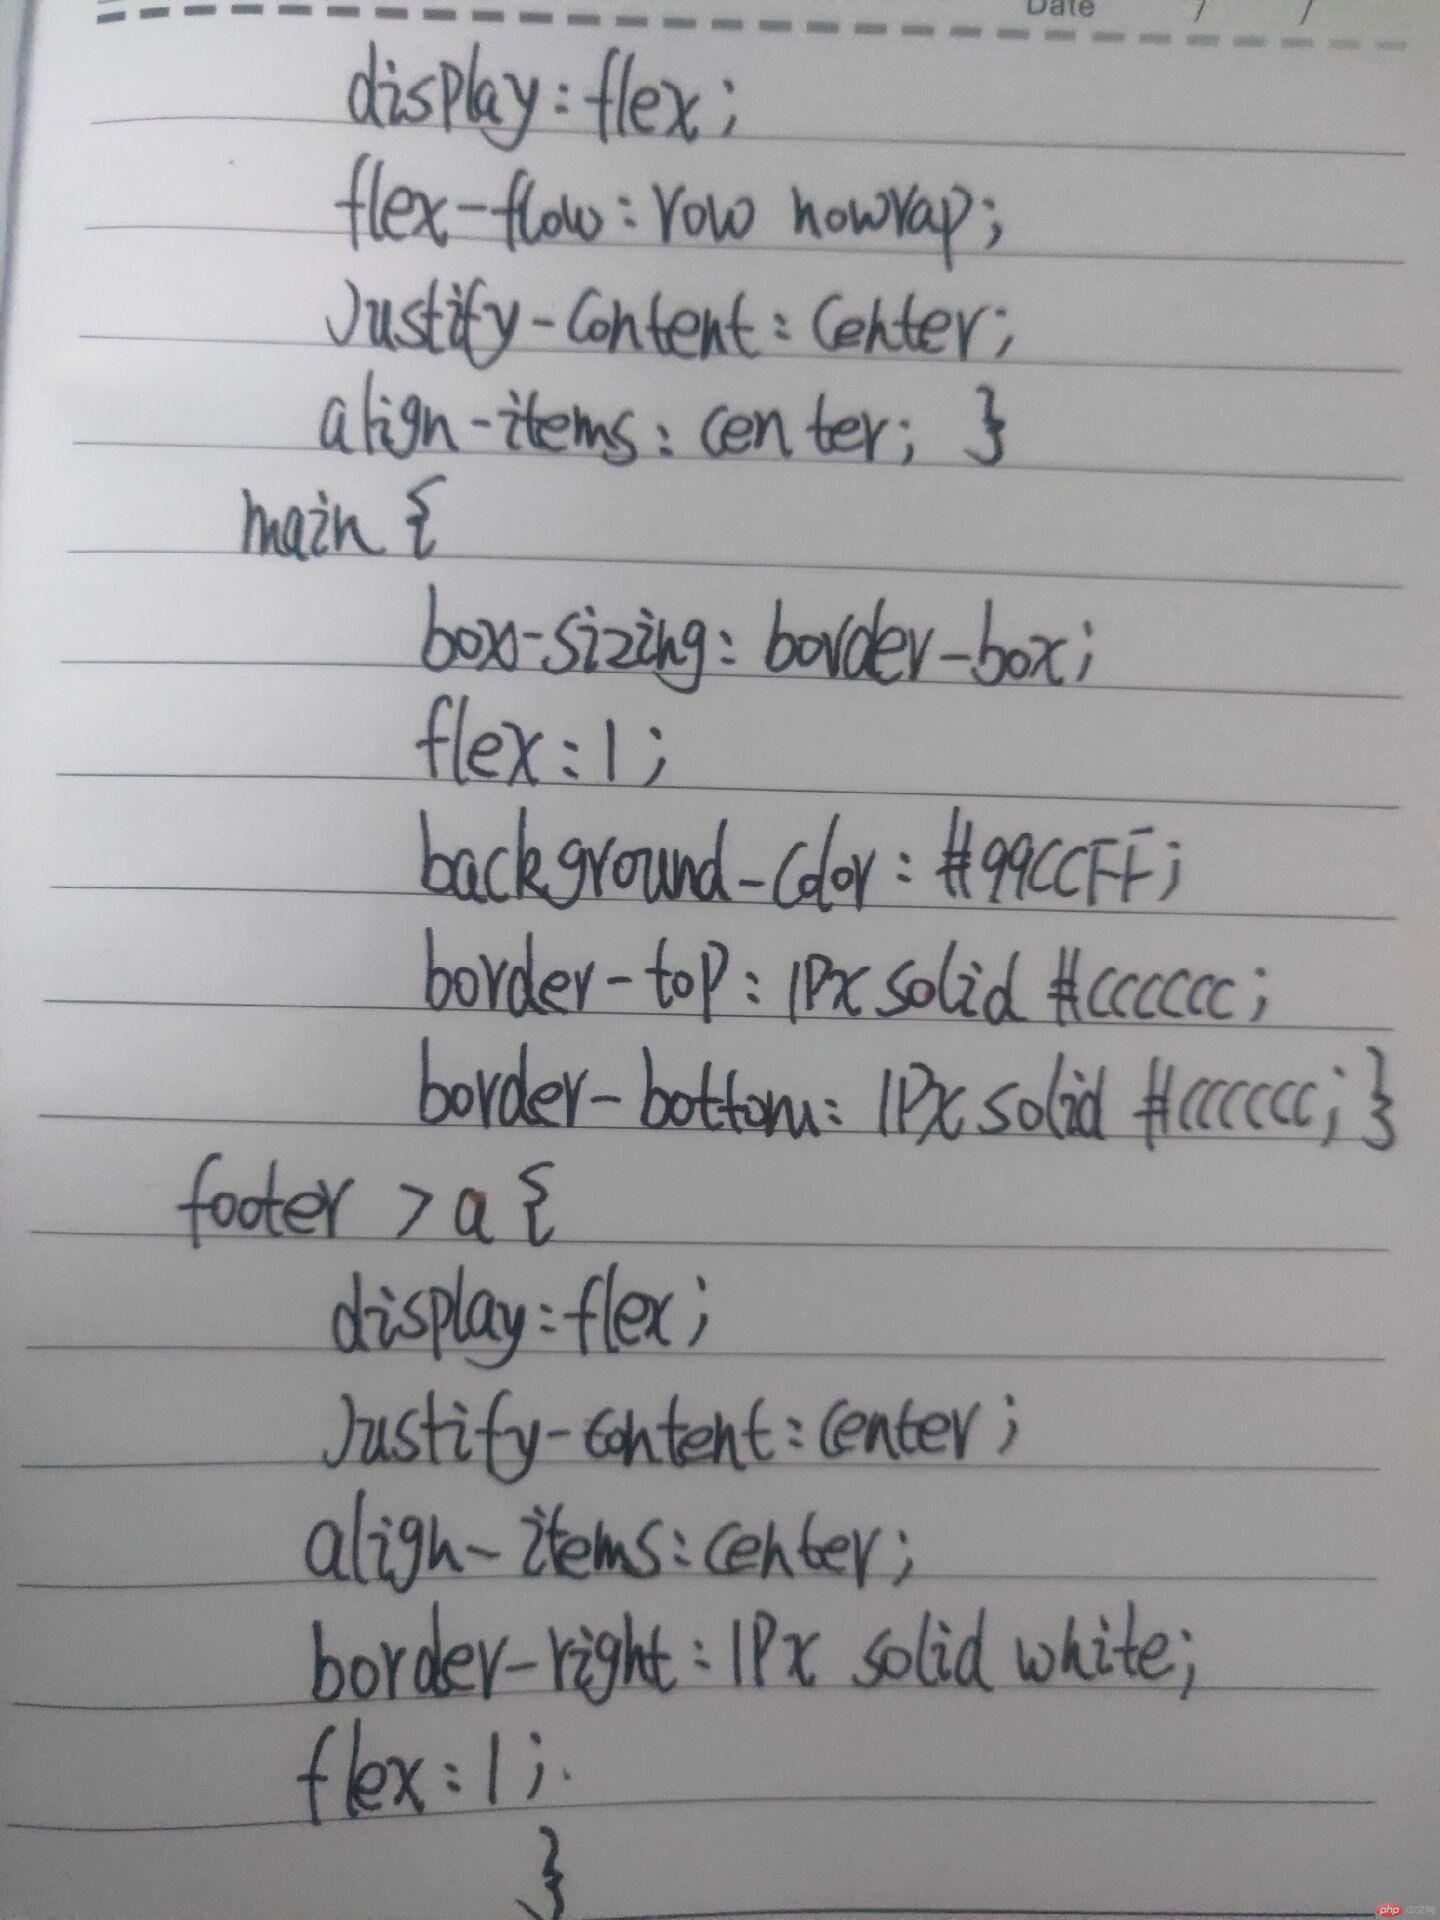 Date / /
display:flex;
flex-flow:row nowrap;
Justify-content:center;
align-items:center; }
main {
box-sizing:border-box;
flex:1;
background-color:#99CCFF;
border-top:1Px solid #cccccc;
border-bottom:1Px solid #cccccc; }
footer >a {
display:flex;
Justify-content:center;
align-items:center;
border-right:1Px solid white;
flex:1;
}
php 中文网